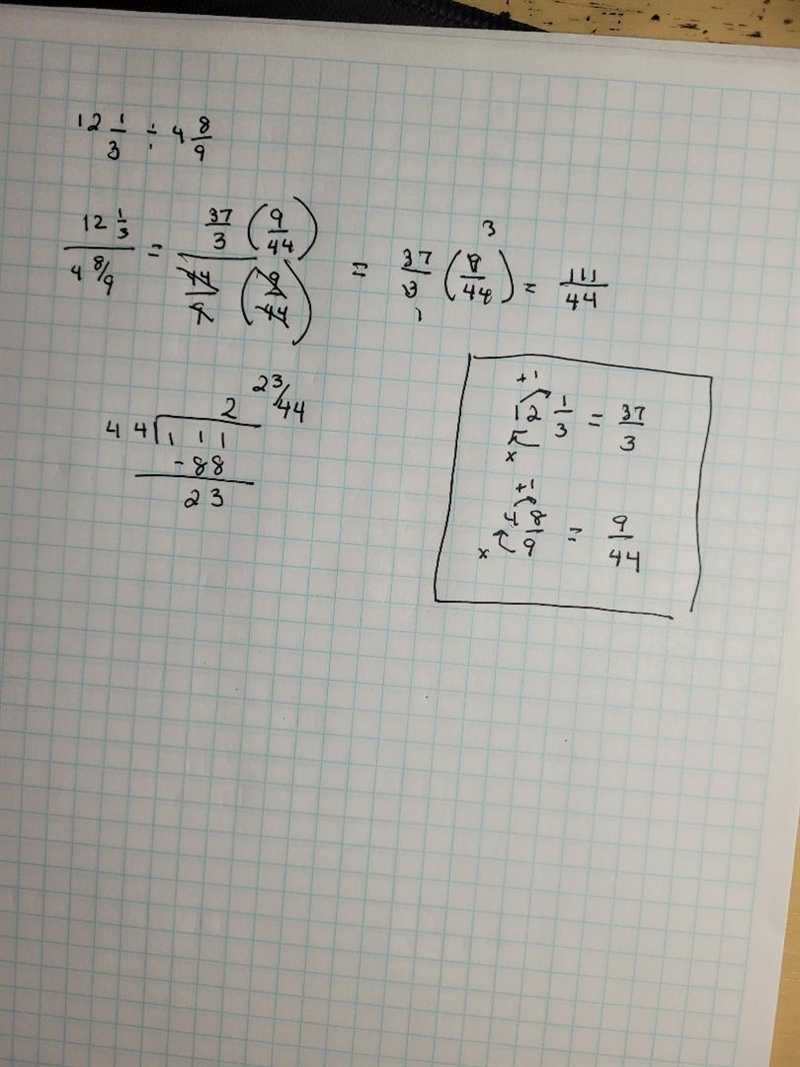 12 1/3 ÷ 4 8/9
(12 1/3)/(4 8/9) = (37/3 (9/44))/(44/9 (9/44)) = 37/3 (9/44) = 111/44
3
1
2 23/44
2
44 111
-88
23
+1
12 1/3 = 37/3
x
+1
4 8/9 = 9/44
x